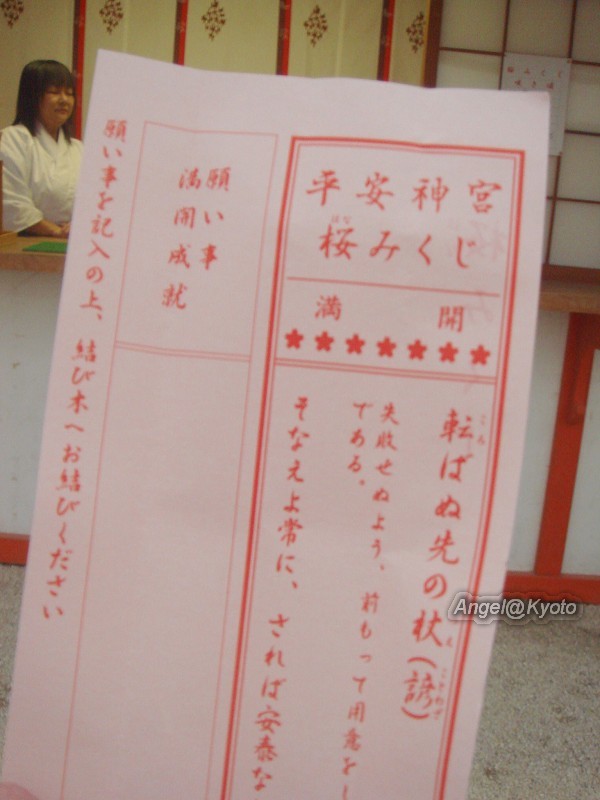 平安神宮
桜みくじ
満開
転ばぬ先の杖(諺)
失敗せぬよう、前もって用意をし
である。
そなえよ常に、されば安泰な
願い事
満開成就
願い事を記入の上、結び木へお結びください
Angel@Kyoto